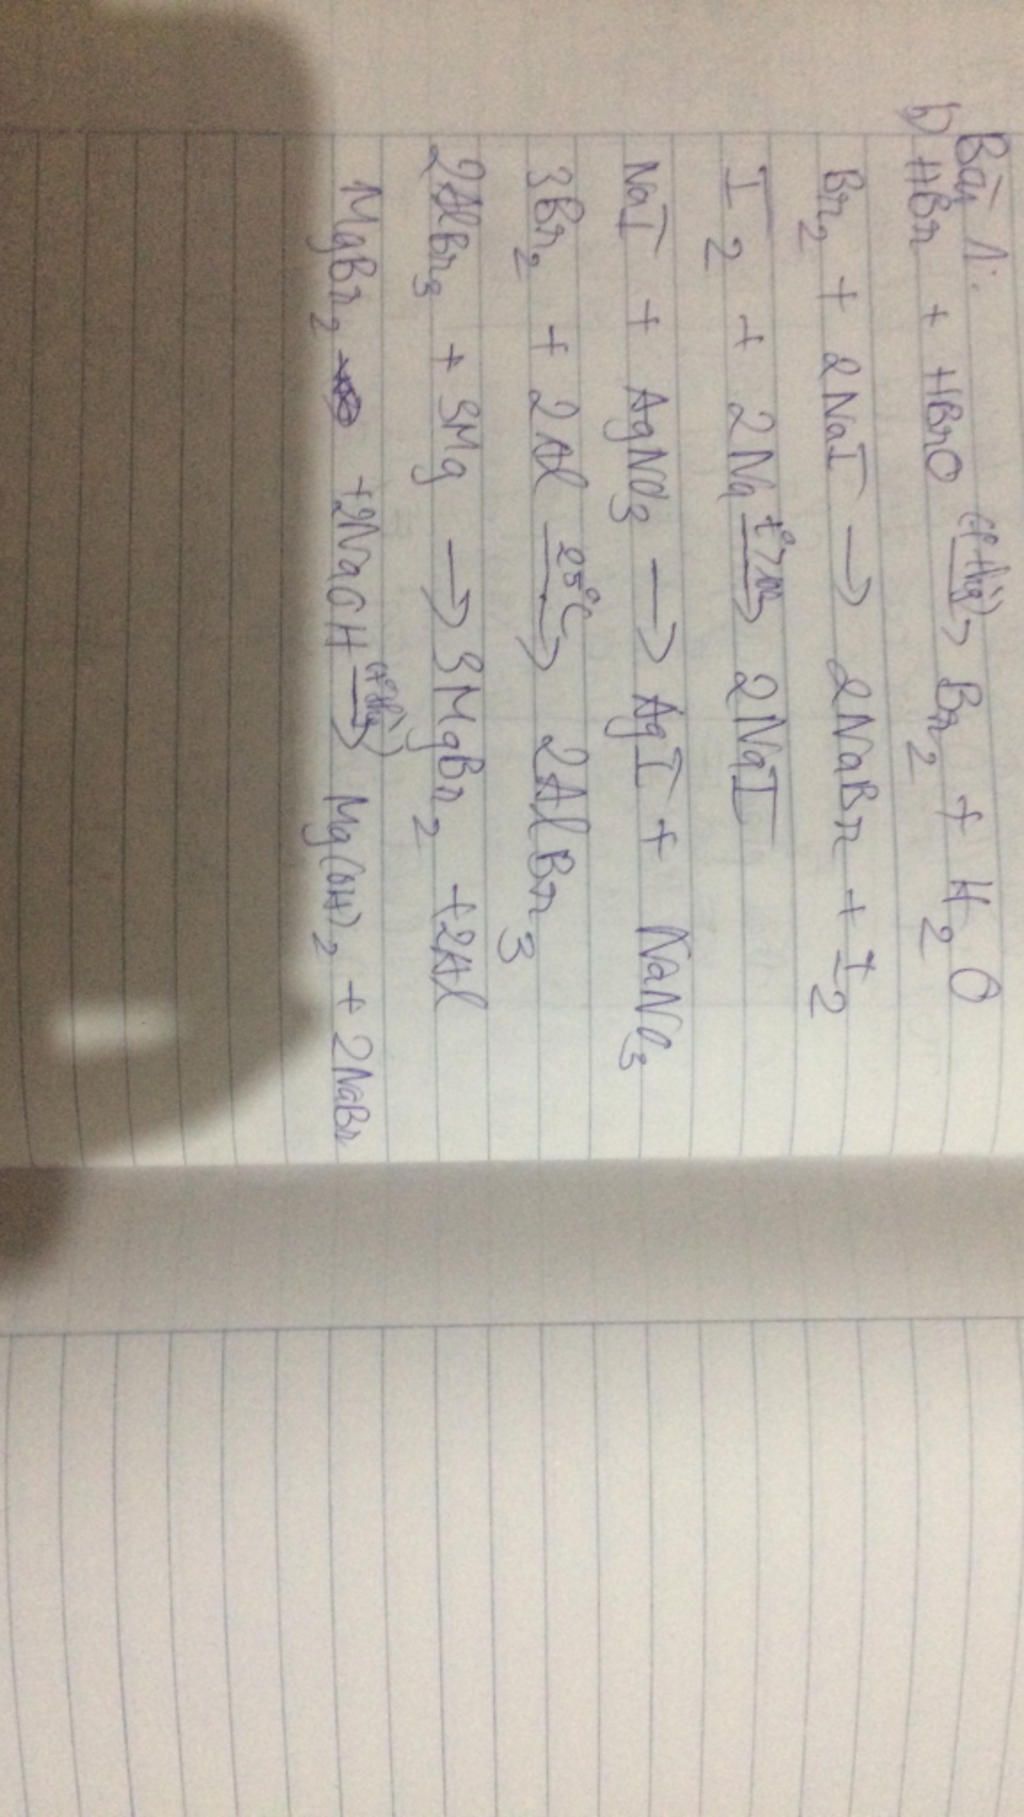 Bài 1:
b) HBr + HBrO (t° thg)→ Br2 + H2O
Br2 + 2NaI → 2NaBr + I2
I2 + 2Na → 2NaI
NaI + AgNO3 → AgI + NaNO3
3Br2 + 2Al 25°C→ 2AlBr3
2AlBr3 + 3Mg → 3MgBr2 + 2Al
MgBr2 + 2NaOH (t° thg)→ Mg(OH)2 + 2NaBr